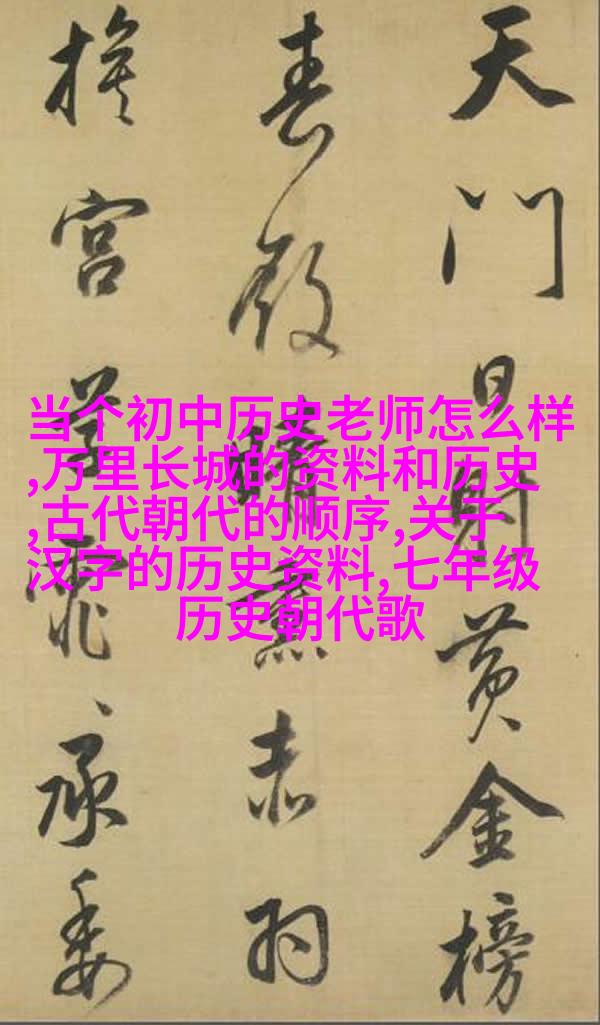 当个初中历史老师怎么样
,万里长城的资料和历史
,古代朝代的顺序,关于
汉字的历史资料,七年级
历史朝代歌
天门日射黄金榜
春殿晴熏赤羽
宫草霏〻承委